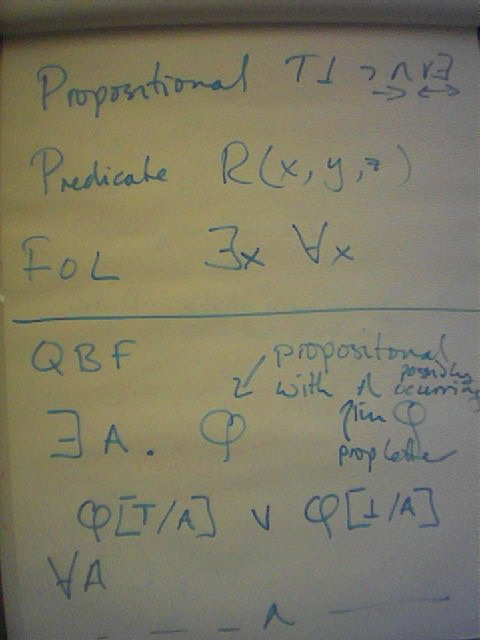 Propositional ⊤ ⊥ ¬ ∧ ∨
→ ↔
Predicate R(x, y, z)
FOL ∃x ∀x
QBF
propositonal
with A possibly ocurring
∃A. φ in φ
prop letter
φ[⊤/A] ∨ φ[⊥/A]
∀A
_ _ ∧ _